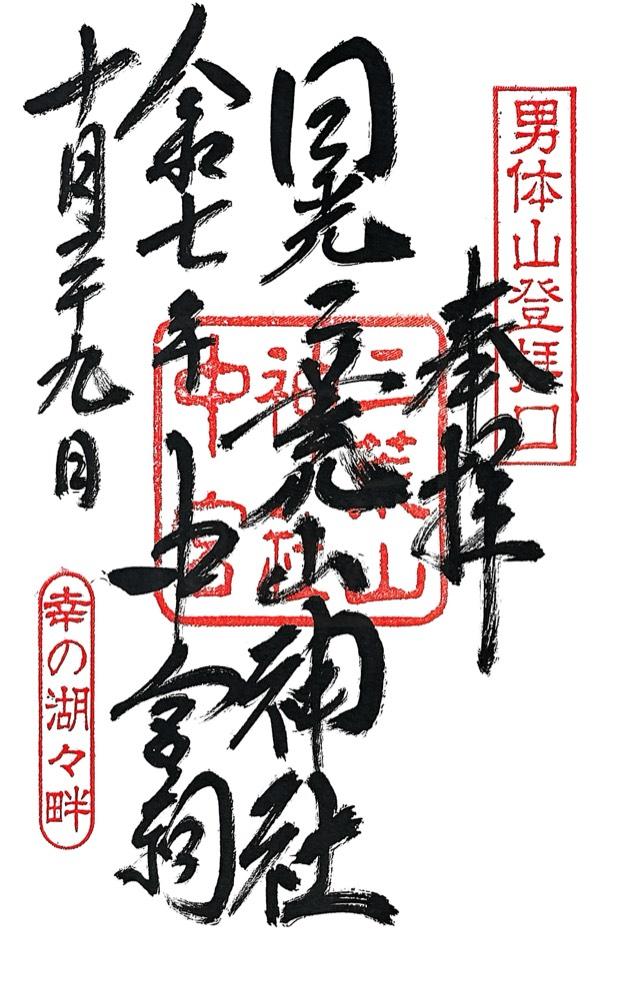 男体山登拝口
奉拝
日光二荒山神社
二荒山
神社
中宮
令和七年 中宮祠
十月二十九日
幸の湖々畔